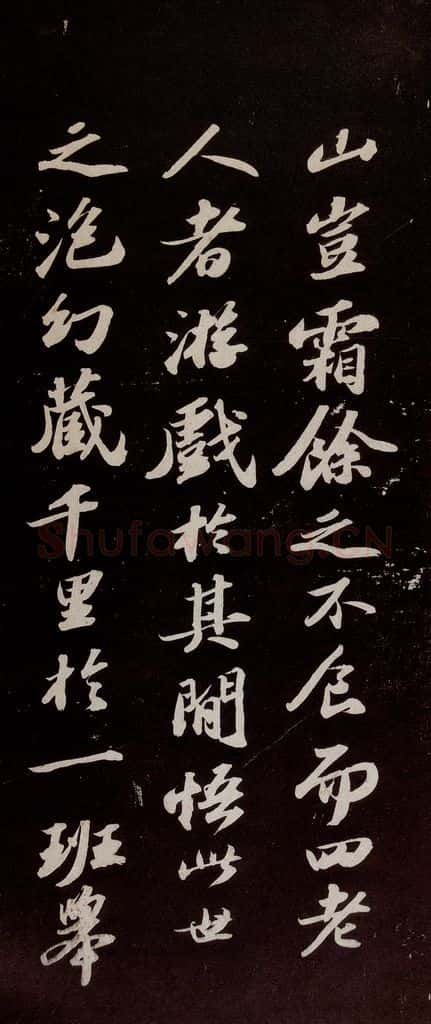 山豈霜餘之不食而四老
人者游戲於其閒悟此世
之泡幻藏千里於一班舉
Shufawang.CN